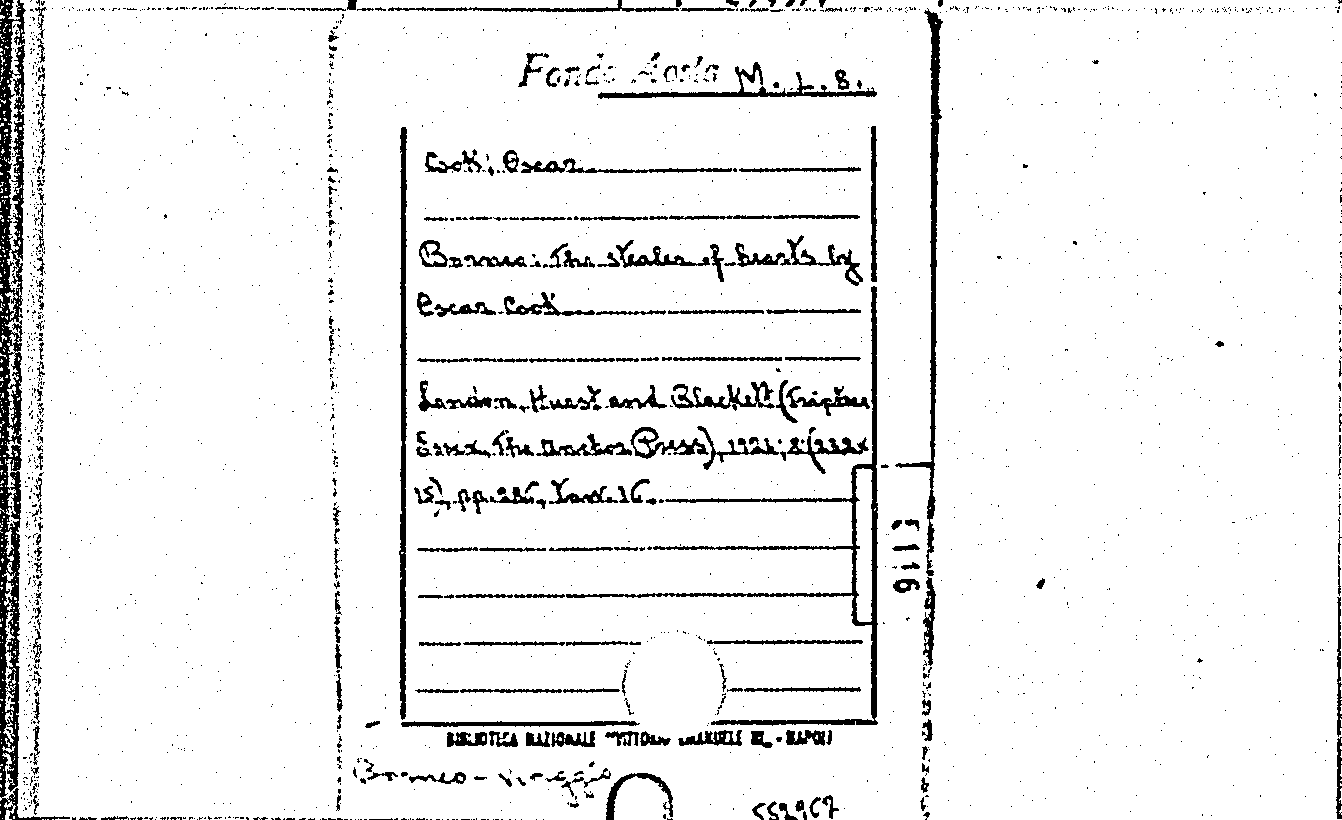 Fondo Aosta M. L. 8.
Cook, Oscar
Borneo: The stealer of hearts by
Oscar Cook
London, Hurst and Blackett (Tiptree
Essex, The Anchor Press), 1924; 8°(232x
15), pp. 286, tav. 16.
5116
BIBLIOTECA NAZIONALE "VITTORIO EMANUELE III" - NAPOLI
Borneo - Viaggio
552967